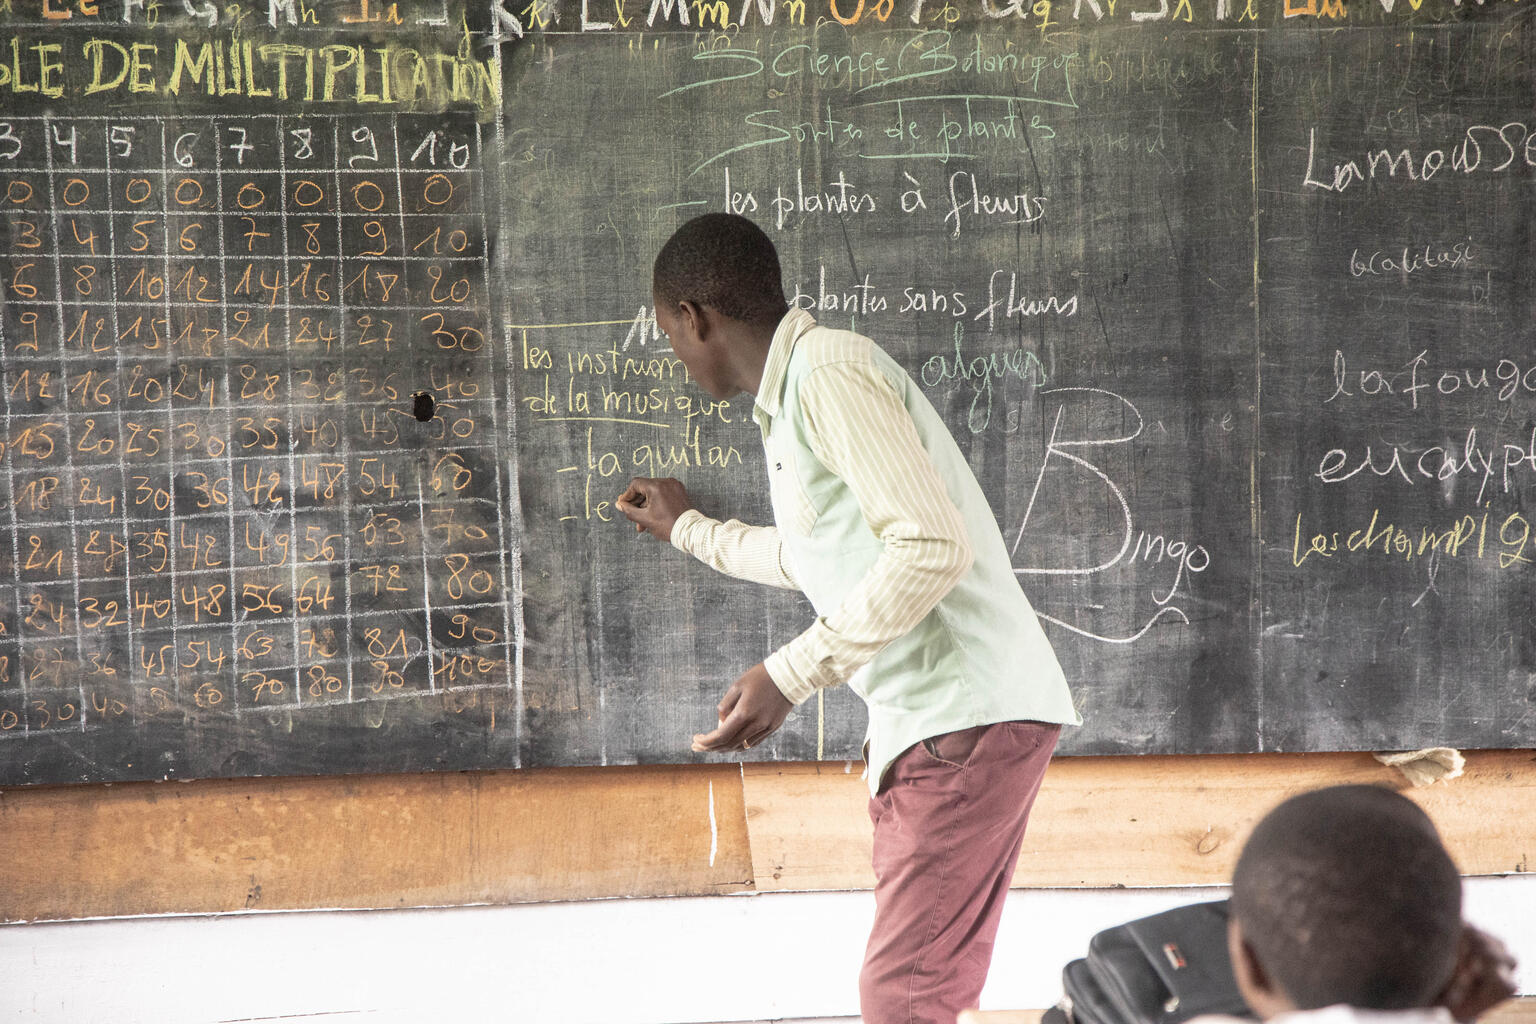 Kk Ll Mm Nn Oo
BLE DE MULTIPLICATION
3 4 5 6 7 8 9 10
0 0 0 0 0 0 0 0
3 4 5 6 7 8 9 10
6 8 10 12 14 16 18 20
9 12 15 18 21 24 27 30
12 16 20 24 28 32 36 40
15 20 25 30 35 40 45 50
18 24 30 36 42 48 54 60
21 28 35 42 49 56 63 70
24 32 40 48 56 64 72 80
27 36 45 54 63 72 81 90
30 40 60 70 80 90 100
Science Botanique
Sortes de plantes
les plantes à fleurs
plantes sans fleurs
algues
les instrum
de la musique
- la guitar
- le
Bingo
Lamous
la foug
eucalypt
Les champig